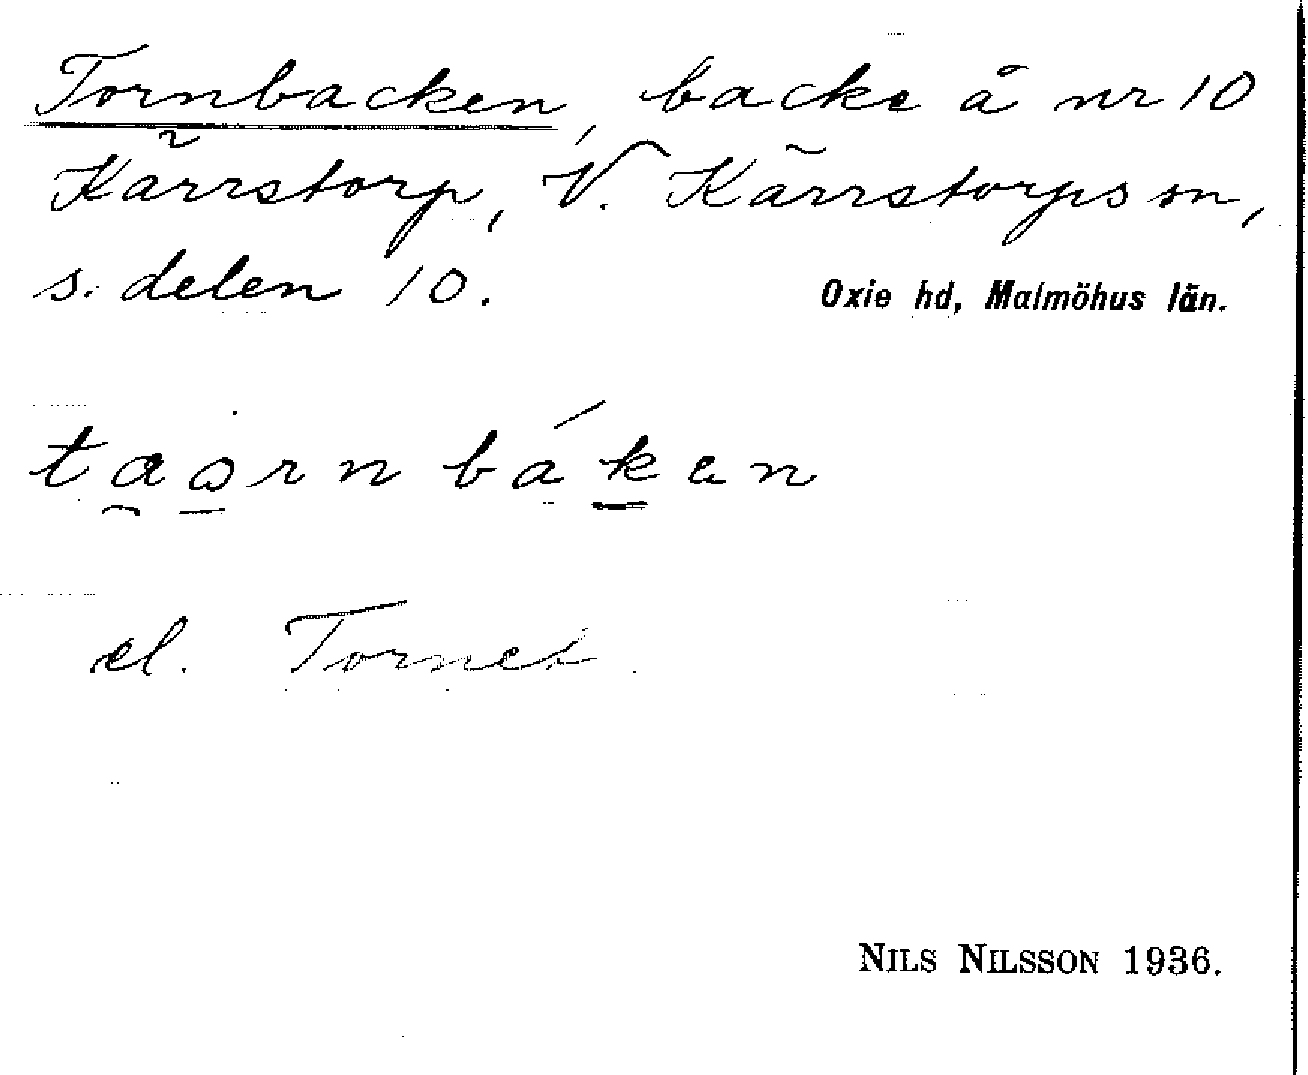 Tornbacken, backe å nr 10
Kärrstorp, V. Kärrstorps sn,
s. delen 10.
Oxie hd, Malmöhus län.
taårnbákan
el. Tornet.
NILS NILSSON 1936.